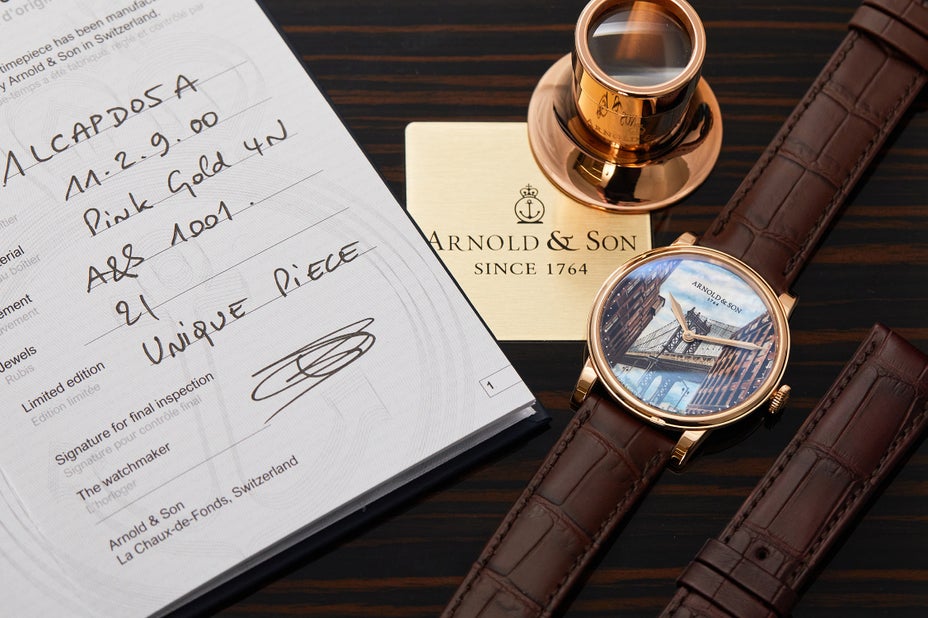 d'origi
timepiece has been manufac
y Arnold & Son in Switzerland.
e-temps a été fabriqué, réglé et contrôlé par
1LCAPD05A
11.2.9.00
Pink Gold 4N
A&S 1001.
21
UNIQUE PIECE
erial
au boîtier
ement
uvement
Jewels
Rubis
Limited edition
Edition limitée
Signature for final inspection
Signature pour contrôle final
The watchmaker
L'horloger
Arnold & Son
La Chaux-de-Fonds, Switzerland
1
ARNOLD
ARNOLD & SON
SINCE 1764
ARNOLD & SON
1764